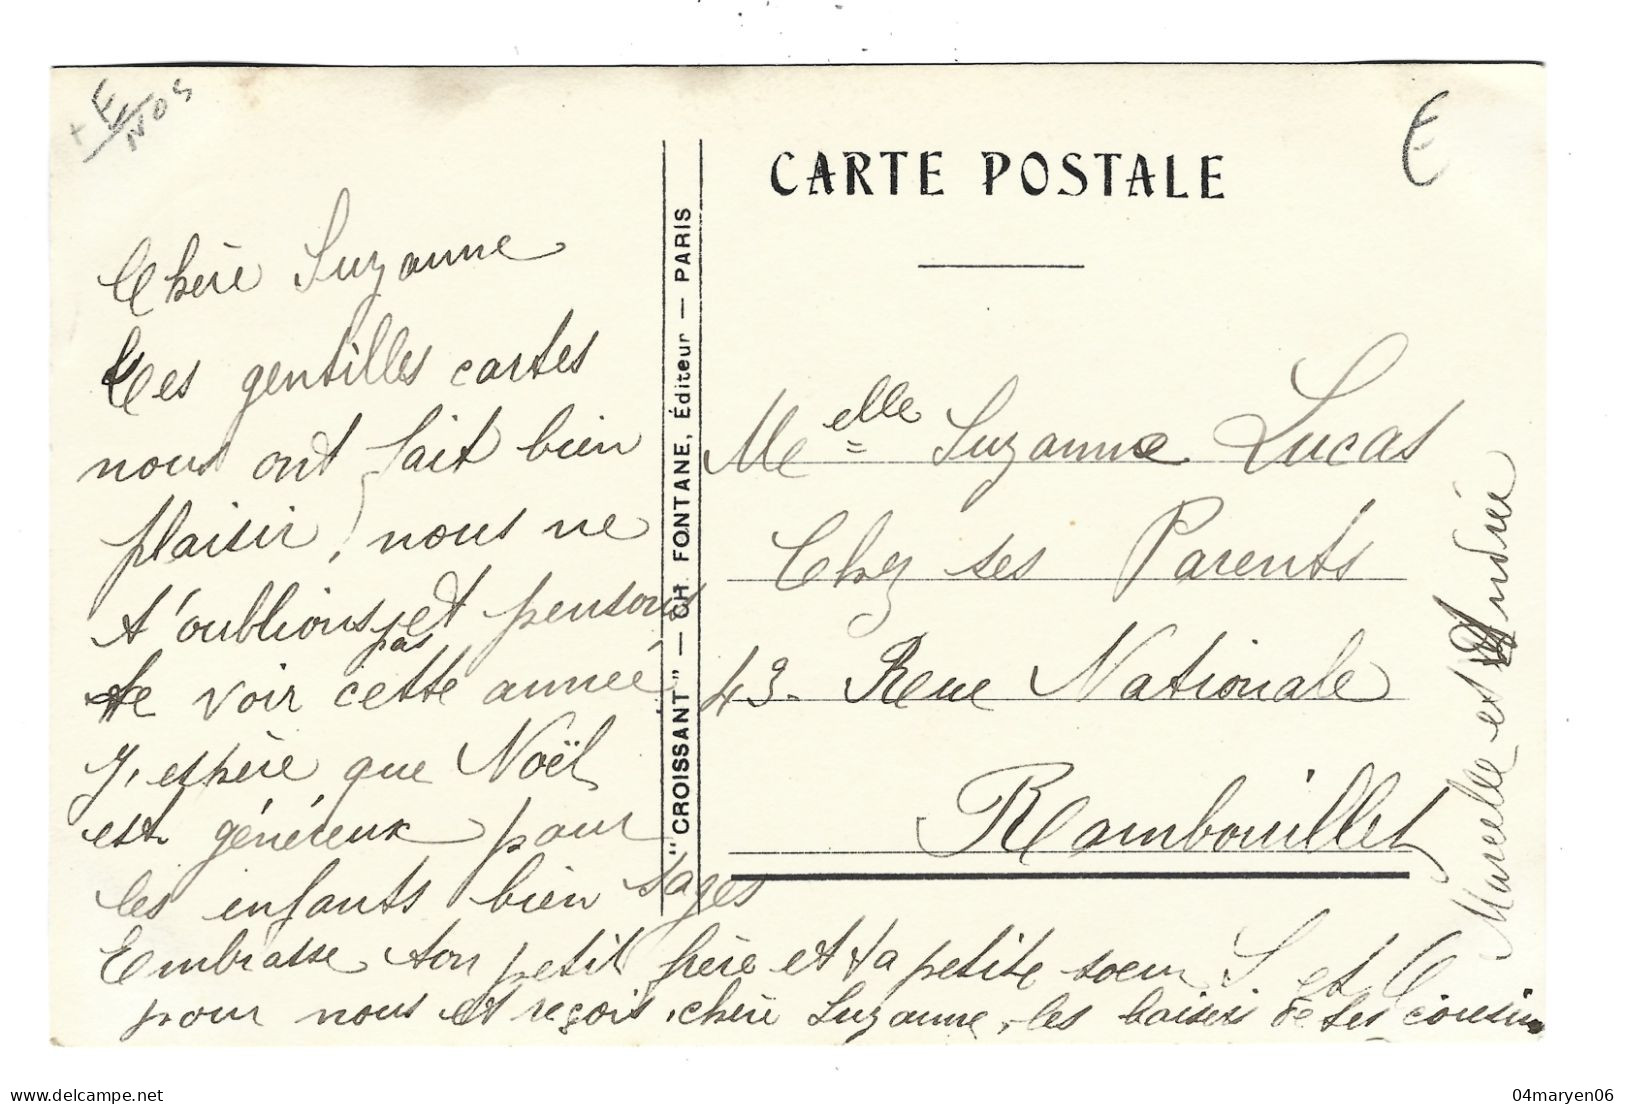 + E
NOS
E
CARTE POSTALE
"CROISSANT" — CH. FONTANE, Éditeur — PARIS
Chère Suzanne
Tes gentilles cartes
nous ont fait bien
plaisir, nous ne
t'oublions pas et pensons
te voir cette année
J'espère que Noël
est généreux pour
les enfants bien sages
Embrasse ton petit frère et ta petite soeur S et C
pour nous et reçois, chère Suzanne, les baisers de tes cousins
Marcelle et Andrée
Melle Suzanne Lucas
Chez ses Parents
43. Rue Nationale
Rambouillet
04maryen06